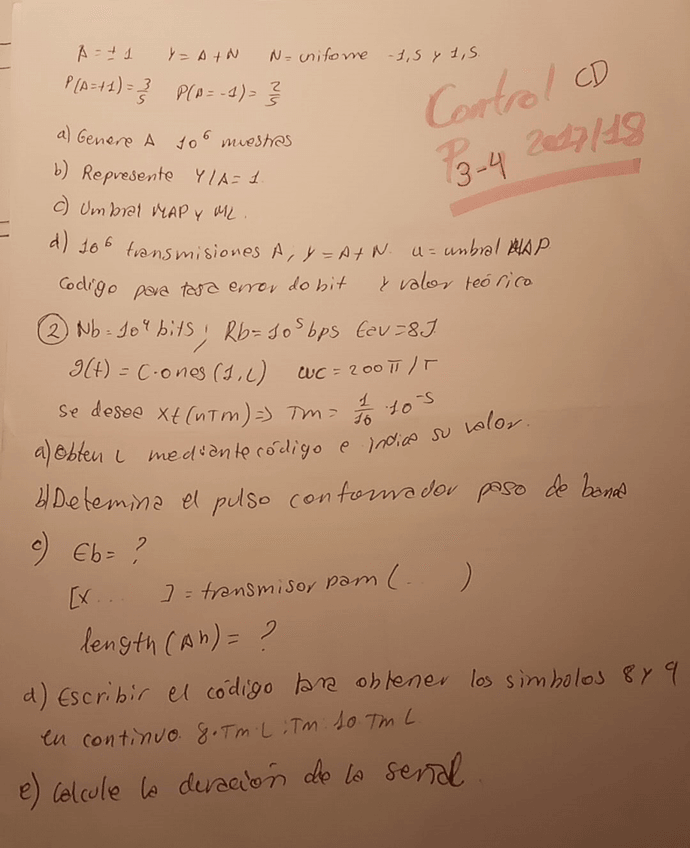 A = ± 1 Y = A + N N = uniforme -1,5 y 1,5.
P(A=+1) = 3/5 P(A=-1) = 2/5
Control CD
P3-4 2017/18
a) Genere A 10^6 muestras
b) Represente Y/A = 1
c) Umbral MAP y ML.
d) 10^6 transmisiones A, y = A + N. u = umbral MAP
Codigo para tasa error do bit y valor teórico
② Nb = 10^4 bits; Rb = 10^5 bps
g(t) = C·ones(1,L) wc = 200π/T
Se desea xt(nTm) => Tm = 1/16 · 10^-5
a) Obten L mediante código e indica su valor.
b) Determina el pulso conformador paso de banda
c) Eb = ?
[X ... ] = transmisor pam ( ... )
length(An) = ?
d) Escribir el código para obtener los simbolos 8 y 9
en continuo. 8·Tm·L:Tm:10·Tm·L
e) Calcule la duración de la señal.